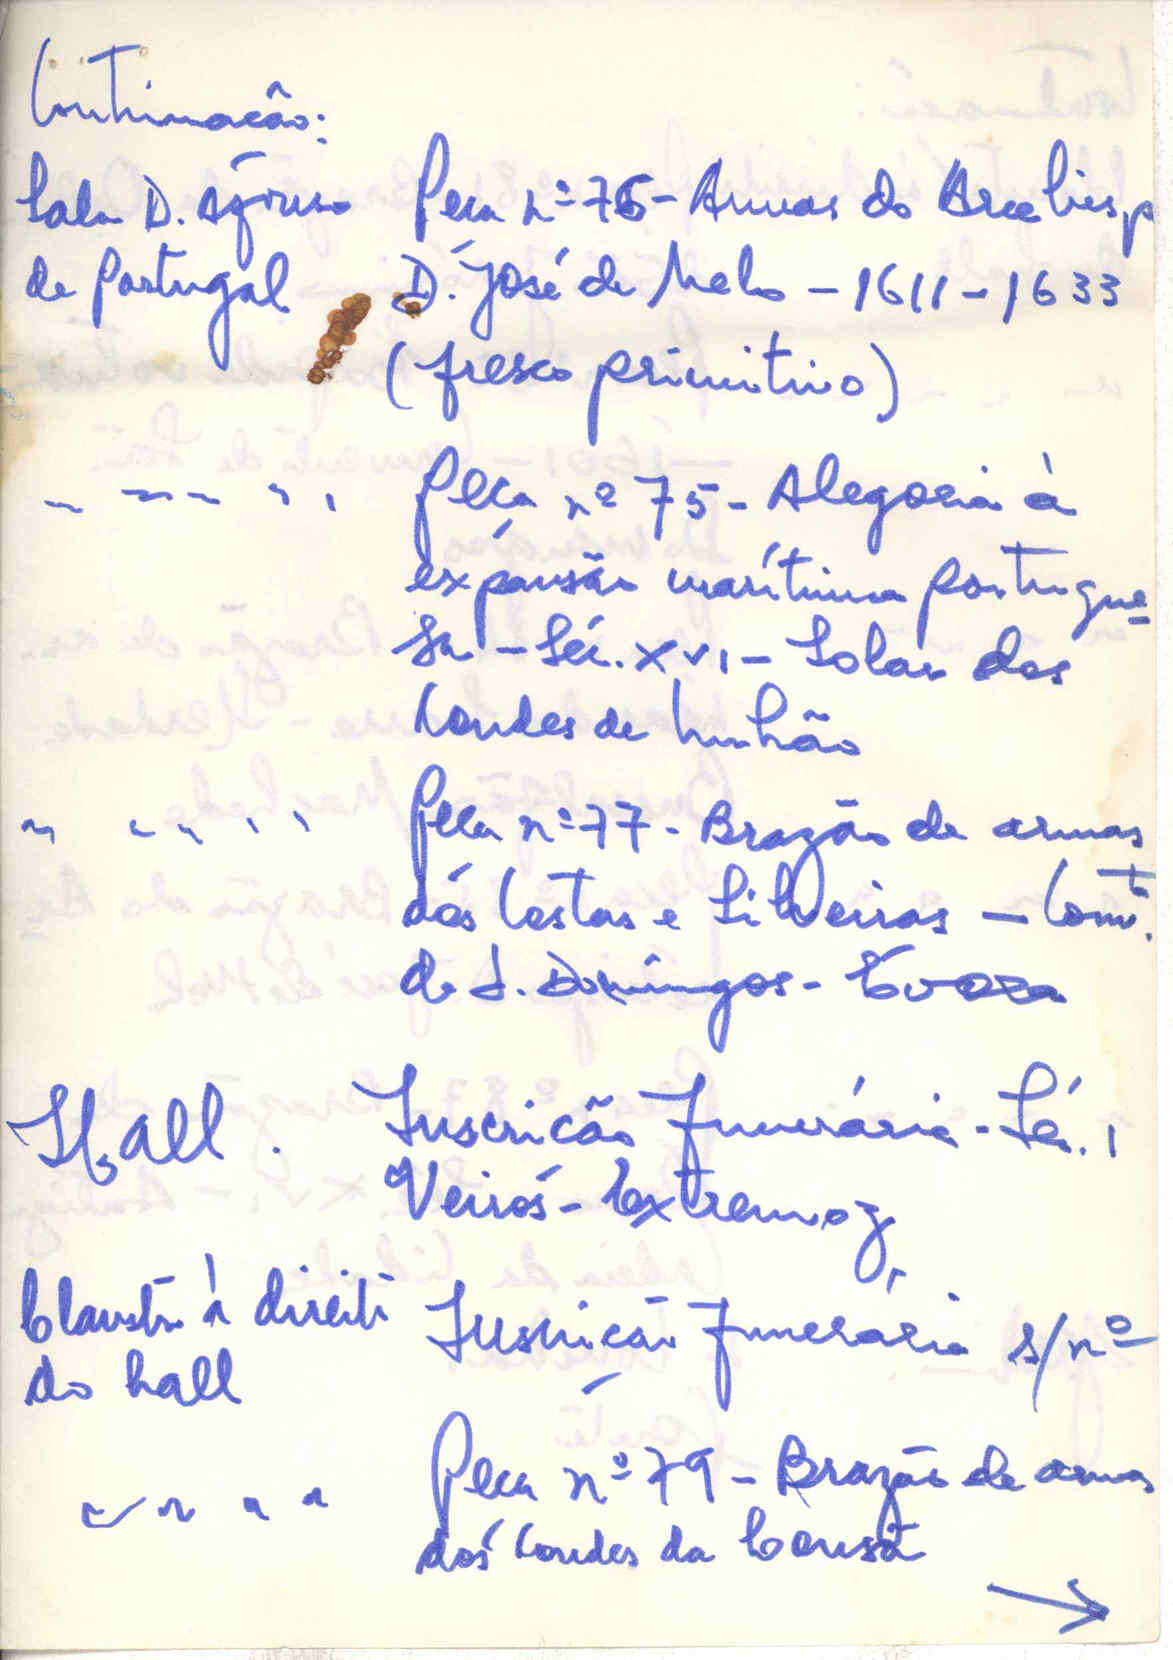 Continuacão:
Sala D. Afonso Peca nº 76 - Armas do Arcebisp
de Portugal D. José de Melo - 1611 - 1633
(fresco primitivo)
" " " " " Peca nº 75 - Alegoria à
expansão marítima portugue
sa - Séc. XVI - Solar dos
Condes de Unhão
" " " " " Peca nº 77 - Brazão de armas
dos Costas e Silveiras - Convto.
de S. Domingos - Evora
Hall. Inscricão Funerária - Séc. I
Veirós - Extremoz
Claustro à direita Inscricão Funerária s/nº
do hall
" " " " Peca nº 79 - Brazão de armas
dos Condes da Lousã
→